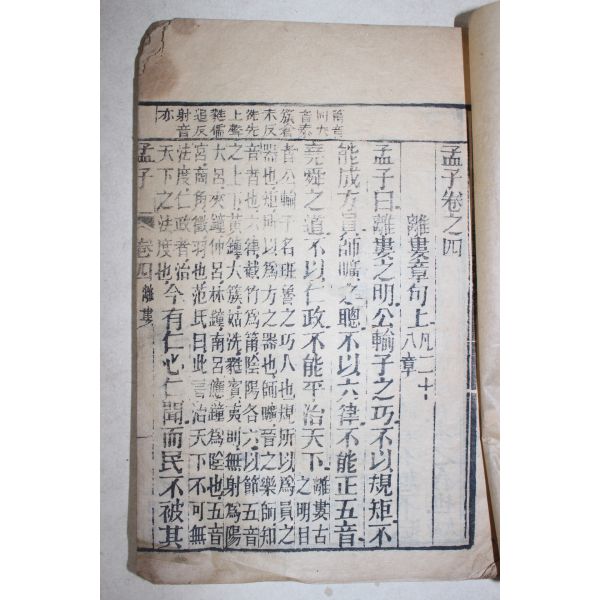 孟子卷之四
離婁章句上 凡二十
八章
孟子曰離婁之明公輸子之巧不以規矩不
能成方員師曠之聰不以六律不能正五音
堯舜之道不以仁政不能平治天下 離婁古
之明目
者公輸子名班魯之巧人也規所以爲員之
器也矩所以爲方之器也師曠晉之樂師知
音者也六律截竹爲筩陰陽各六以節五音
之上下黃鐘大簇姑洗蕤賓夷則無射爲陽
大呂夾鐘仲呂林鐘南呂應鐘爲陰也五音
宮商角徵羽也范氏曰此言治天下不可無
法度仁政者治
天下之法度也 今有仁心仁聞而民不被其
同大
音泰
簇倉
洗先
上聲
蕤儒
追反
射音
亦
孟子 卷四 離婁